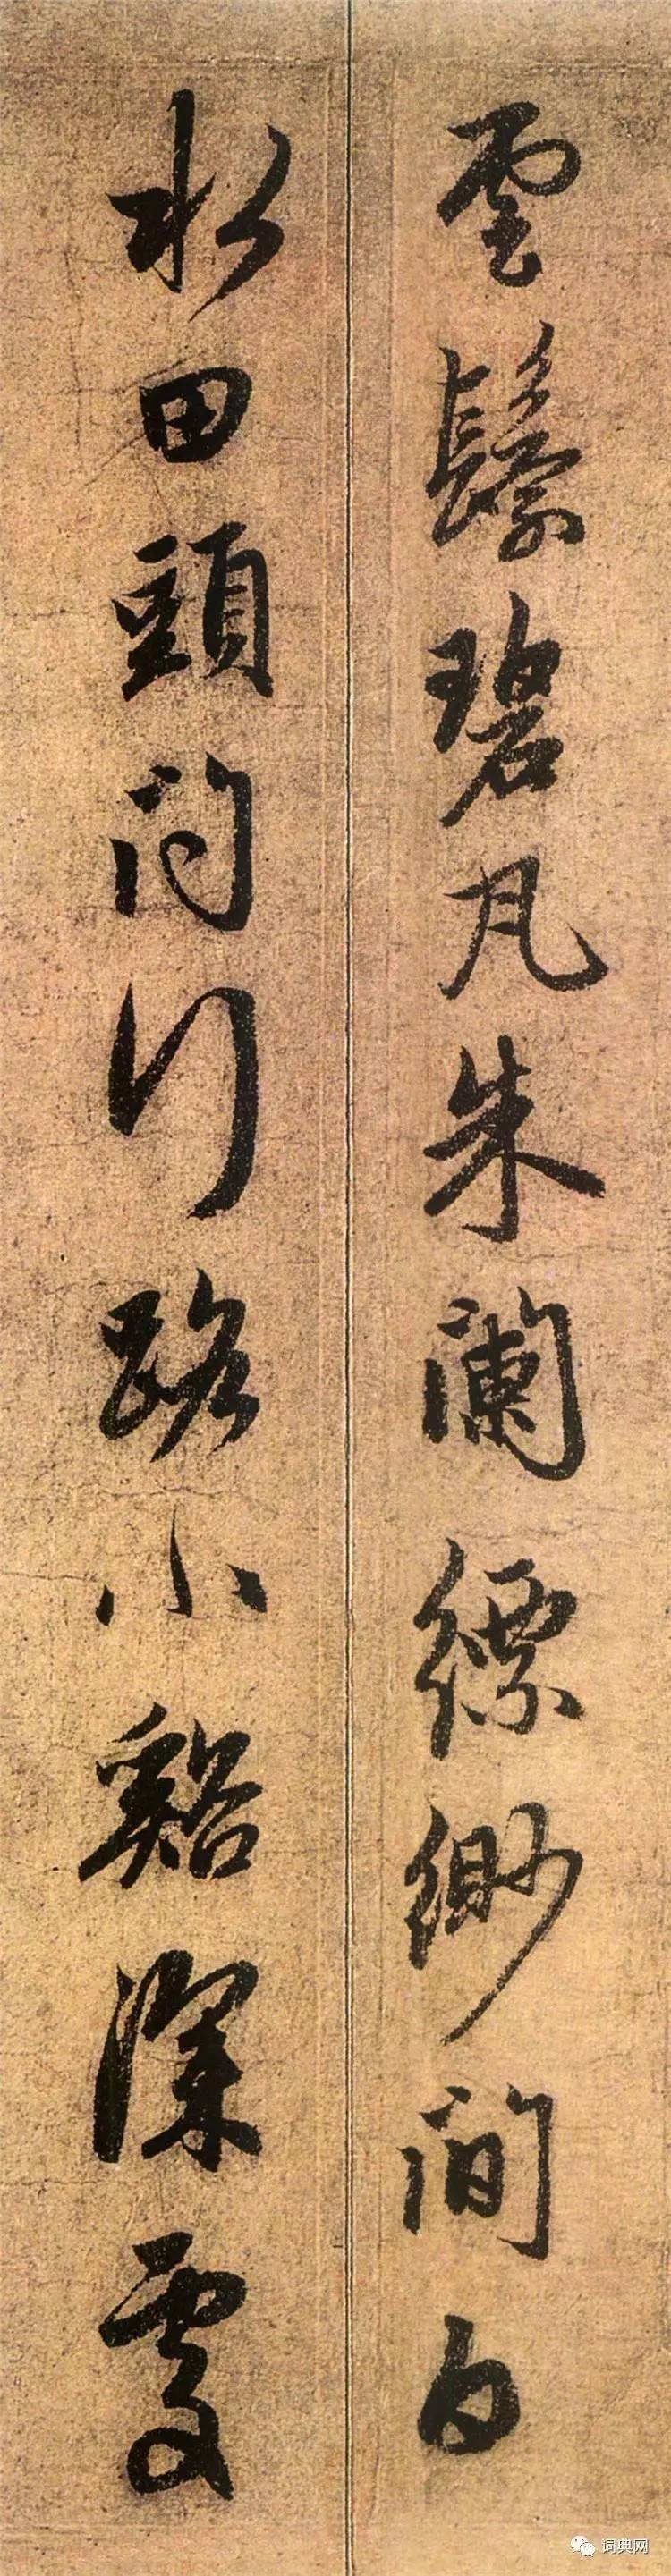 雲鬟碧瓦朱闌縹緲間白
水田頭問行路小谿深處
词典网